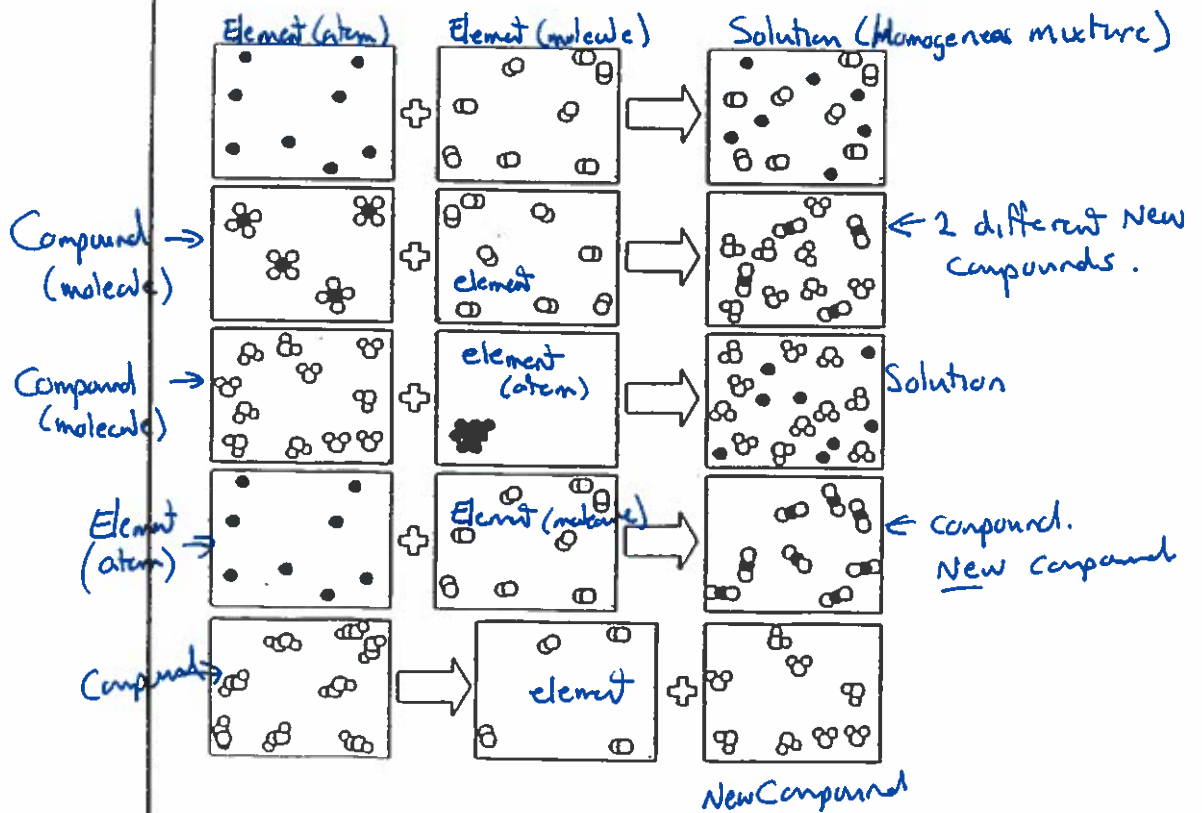 Element (atom)
Element (molecule)
Solution (Homogeneas mixture)
Compound
(molecule)
element
2 different New
Compounds.
Compound
(molecule)
element
(atom)
Solution
Element
(atom)
Element (molecule)
Compound.
New Compound
Compound
element
New Compound